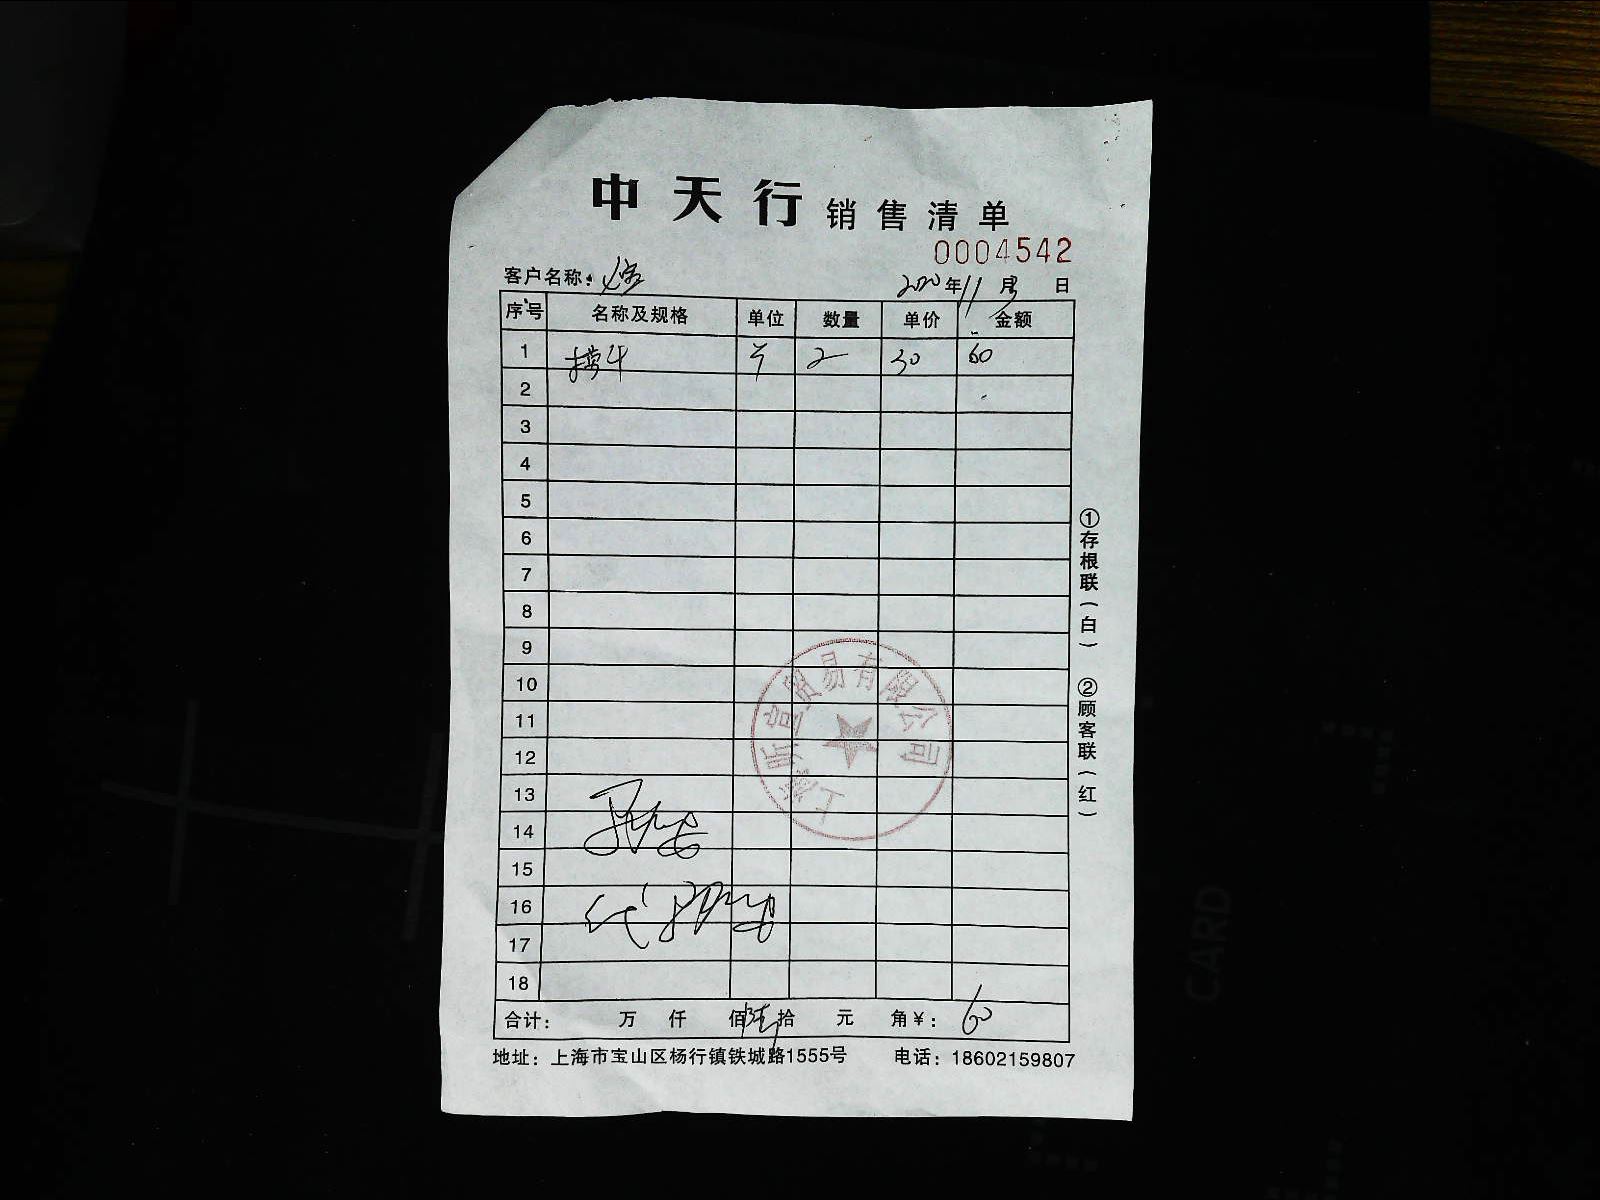 中天行 销售清单
0004542
客户名称：
2020年11月 日
序号 名称及规格 单位 数量 单价 金额
1 捞斗 个 2 30 60
2
3
4
5
6
7
8
9
10
11
12
13
14
15
16
17
18
上海昕宣贸易有限公司
合计： 万 仟 佰 陆拾 元 角 ¥：60
地址：上海市宝山区杨行镇铁城路1555号 电话：18602159807
①存根联（白） ②顾客联（红）
CARD